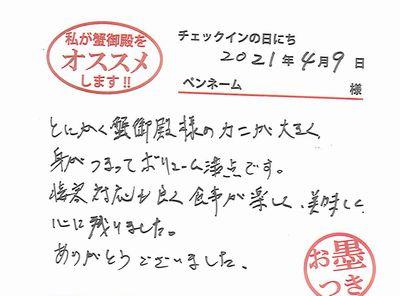 私が蟹御殿を
オススメ
します!!
チェックインの日にち
2021年4月9日
ペンネーム 様
とにかく蟹御殿様のカニが大きく
身がつまってボリューム満点です。
接客対応も良く食事が楽しく、美味しく
心に残りました。
ありがとうございました。
お墨
つき